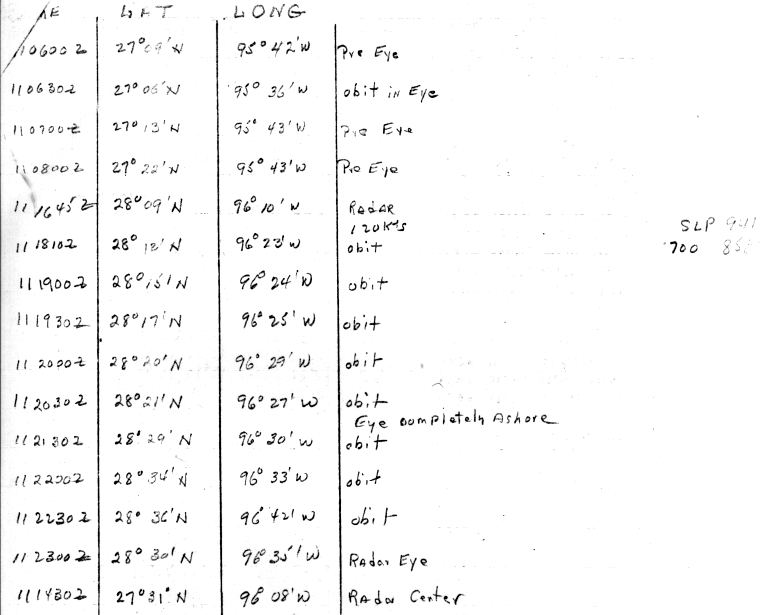 LAT LONG
110600Z 27°09'N 95°42'W Pre Eye
110630Z 27°06'N 95° 36'W obit in Eye
110700Z 27° 13'N 95° 43'W Pre Eye
110800Z 27° 22'N 95° 43'W Pre Eye
111645Z 28°09'N 96° 10' W RADAR
120Kts SLP
111810Z 28° 12'N 96°23'W obit 700
111900Z 28°15'N 96° 24'W obit
111930Z 28°17'N 96° 25' W obit
112000Z 28°20'N 96° 29' W obit
112030Z 28°21'N 96° 27' W obit
Eye completely Ashore
112130Z 28°29' N 96° 30' W obit
112200Z 28° 34'N 96° 33'W obit
112230Z 28° 36'N 96° 42' W obit
112300Z 28° 30' N 96° 35' W Radar Eye
111430Z 27°31' N 96° 08'W Radar Center